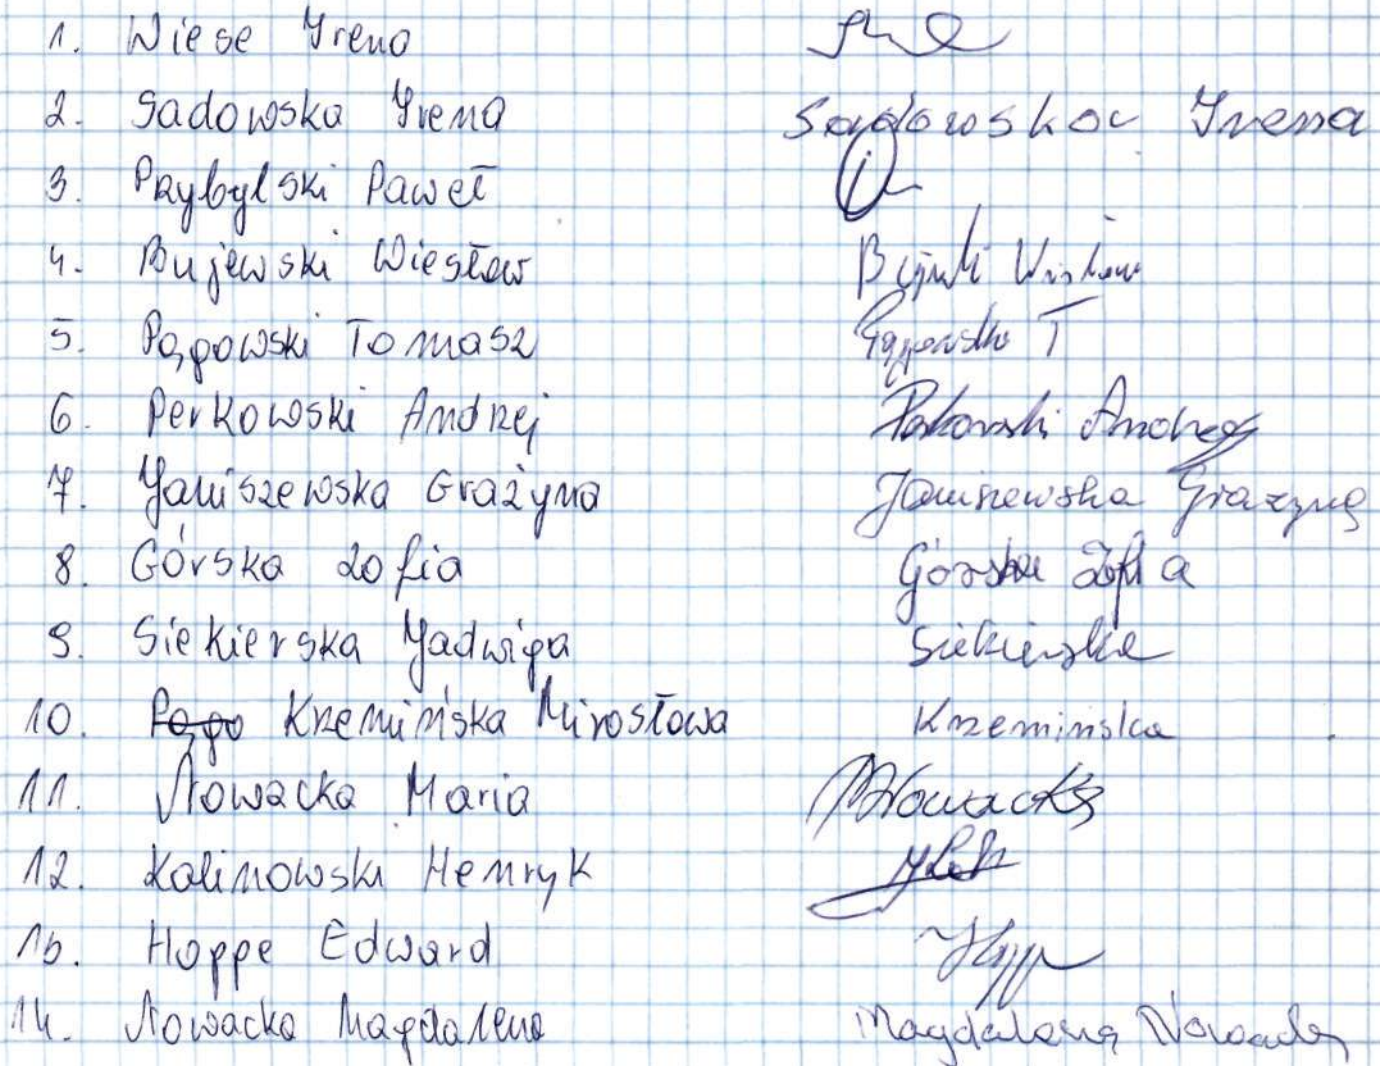 1. Wiese Irena
2. Sadowska Irena Sadowska Irena
3. Przybylski Paweł
4. Bujewski Wiesław
5. Pągowski Tomasz T
6. Perkowski Andrzej Perkowski Andrzej
7. Janiszewska Grażyna Janiszewska Grażyna
8. Górska Zofia Górska Zofia
9. Siekierska Jadwiga Siekierska
10. Pągo Krzemińska Mirosława Krzemińska
11. Nowacka Maria Nowacka
12. Kalinowski Henryk
13. Hoppe Edward
14. Nowacka Magdalena Magdalena Nowacka